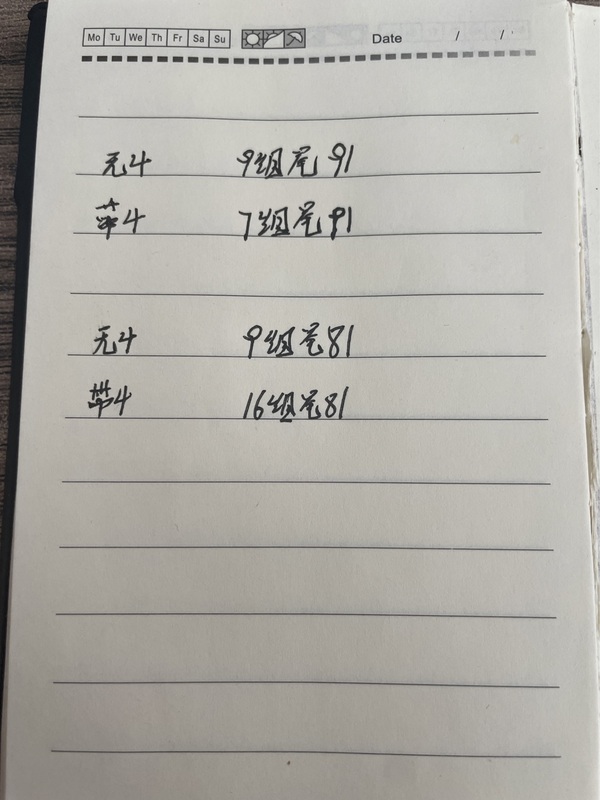 Mo Tu We Th Fr Sa Su Date / /
无4 9组尾91
带4 7组尾91
无4 9组尾81
带4 16组尾81